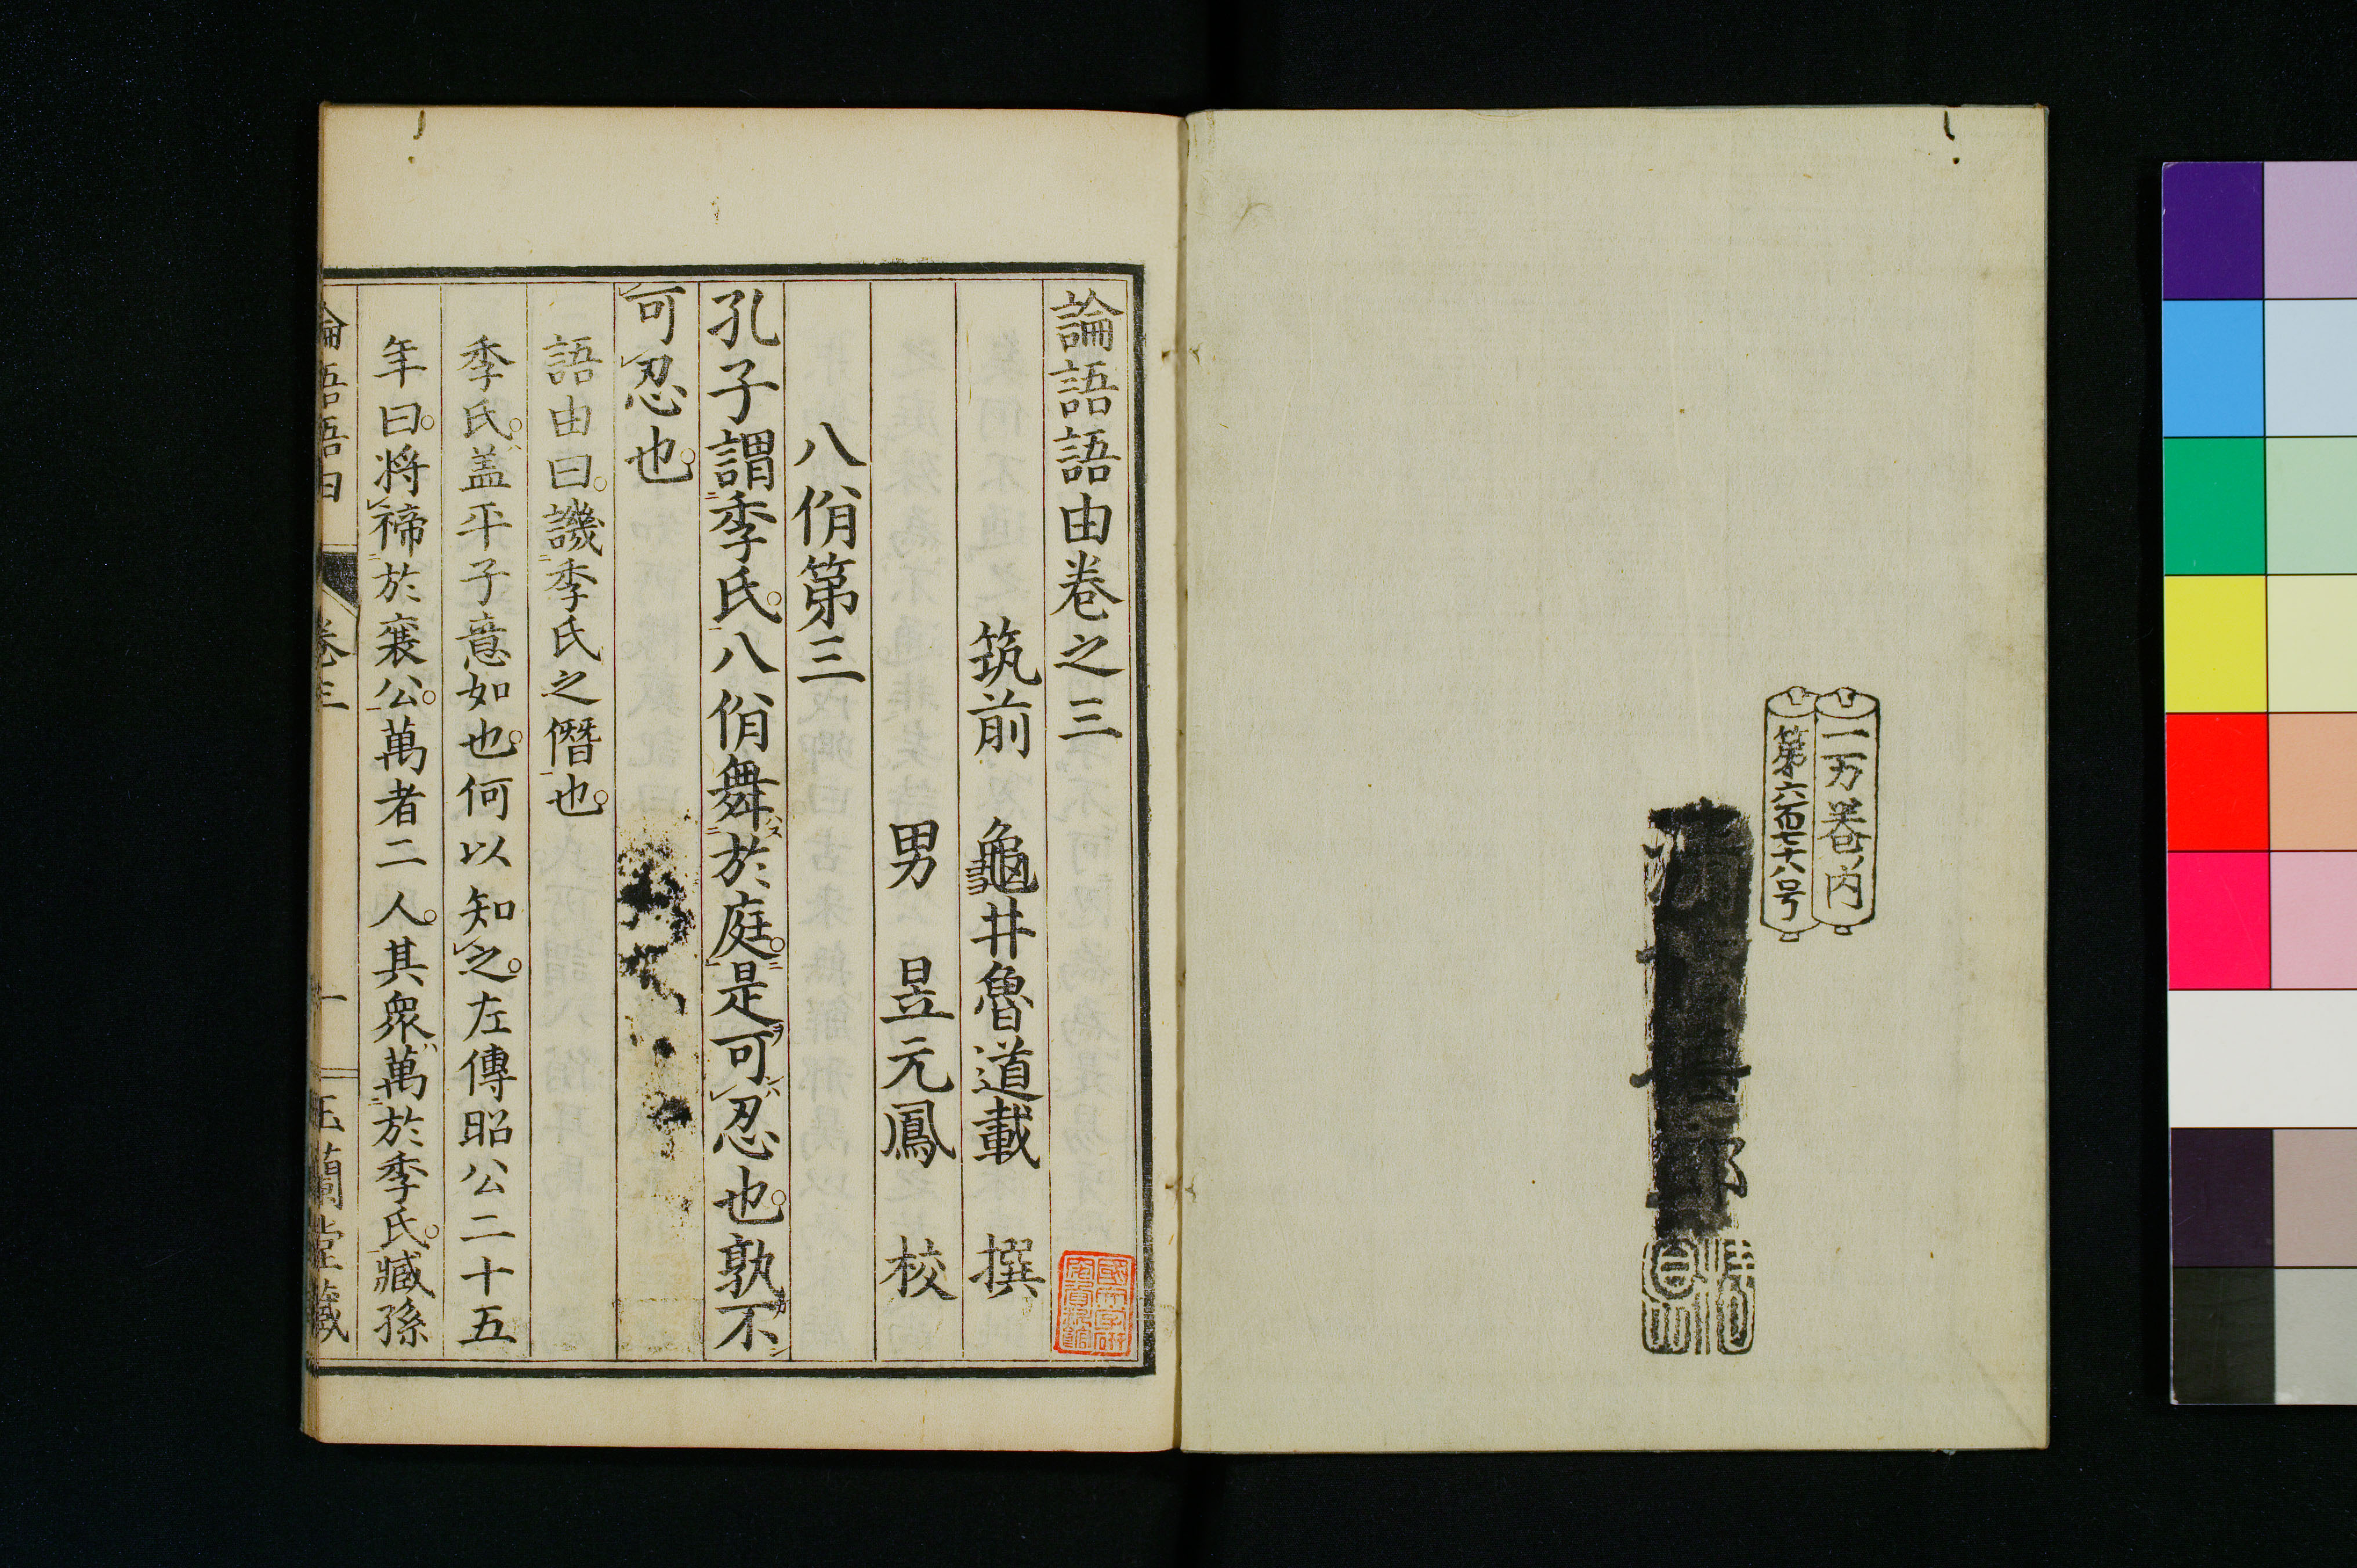 一万巻内
第六百七十八号
論語語由卷之三
筑前 龜井魯道載 撰
男 昱元鳳 校
八佾第三
孔子謂季氏八佾舞於庭是可忍也孰不
可忍也
語由曰譏季氏之僭也
季氏蓋平子意如也何以知之左傳昭公二十五
年曰将禘於襄公萬者二人其衆萬於季氏臧孫
論語語由 卷三 一 玉蘭堂藏